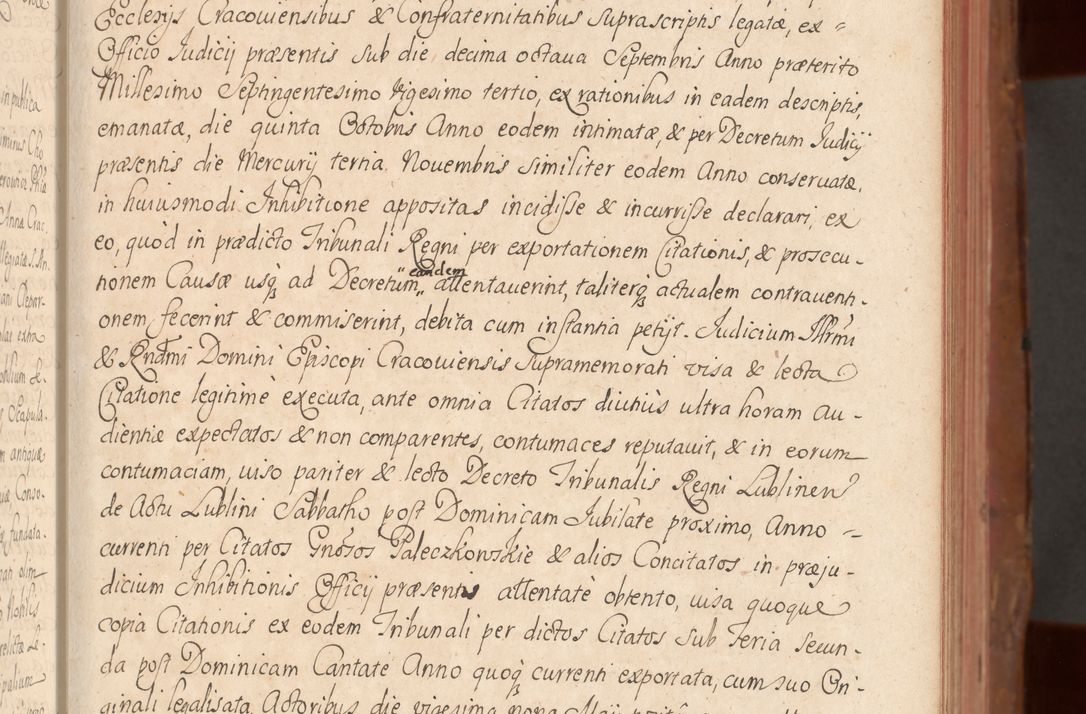 Ecclesijs Cracouiensibus & Confraternitatibus suprascriptis legatæ, ex =
Officio Judicij præsentis sub die decima octaua Septembris Anno præterito
Millesimo Septingentesimo Vigesimo tertio, ex rationibus in eadem descriptis,
emanatæ, die quinta Octobris Anno eodem intimatæ, & per Decretum Judicij
præsentis die Mercurij tertia Nouembris similiter eodem Anno conseruatæ,
in huiusmodi Inhibitione appositas incidisse & incurrisse declarari, ex
eo, quòd in prædicto Tribunali Regni per exportationem Citationis, & prosecu-
tionem Causæ usq3 ad Decretum eandem attentauerint, taliterq3 actualem contrauenti-
onem fecerint & commiserint, debita cum instantia petijt. Judicium Illrmi
& Rndmi Domini Episcopi Cracouiensis supramemorati visa & lecta
Citatione legitimè executa, ante omnia Citatos diutiùs ultra horam au-
dientiæ expectatos & non comparentes, contumaces reputauit, & in eorum
contumaciam, uiso pariter & lecto Decreto Tribunalis Regni Lublinen
de Actu Lublini Sabbatho post Dominicam Jubilate proximo, Anno =
currenti per Citatos Gnosos Paleczkowskie & alios Concitatos in præju-
dicium Inhibitionis Officij præsentis attentatè obtento, uisa quoque
copia Citationis ex eodem Tribunali per dictos Citatos sub Feria secun-
da post Dominicam Cantate Anno quoq3 currenti exportata, cum suo Ori-
ginali legalisata Actoribus die vigesima nona Maij
in publica
Conso-
fundata.
olim
Nobilis
antiquæ
extra
Anna Crac.